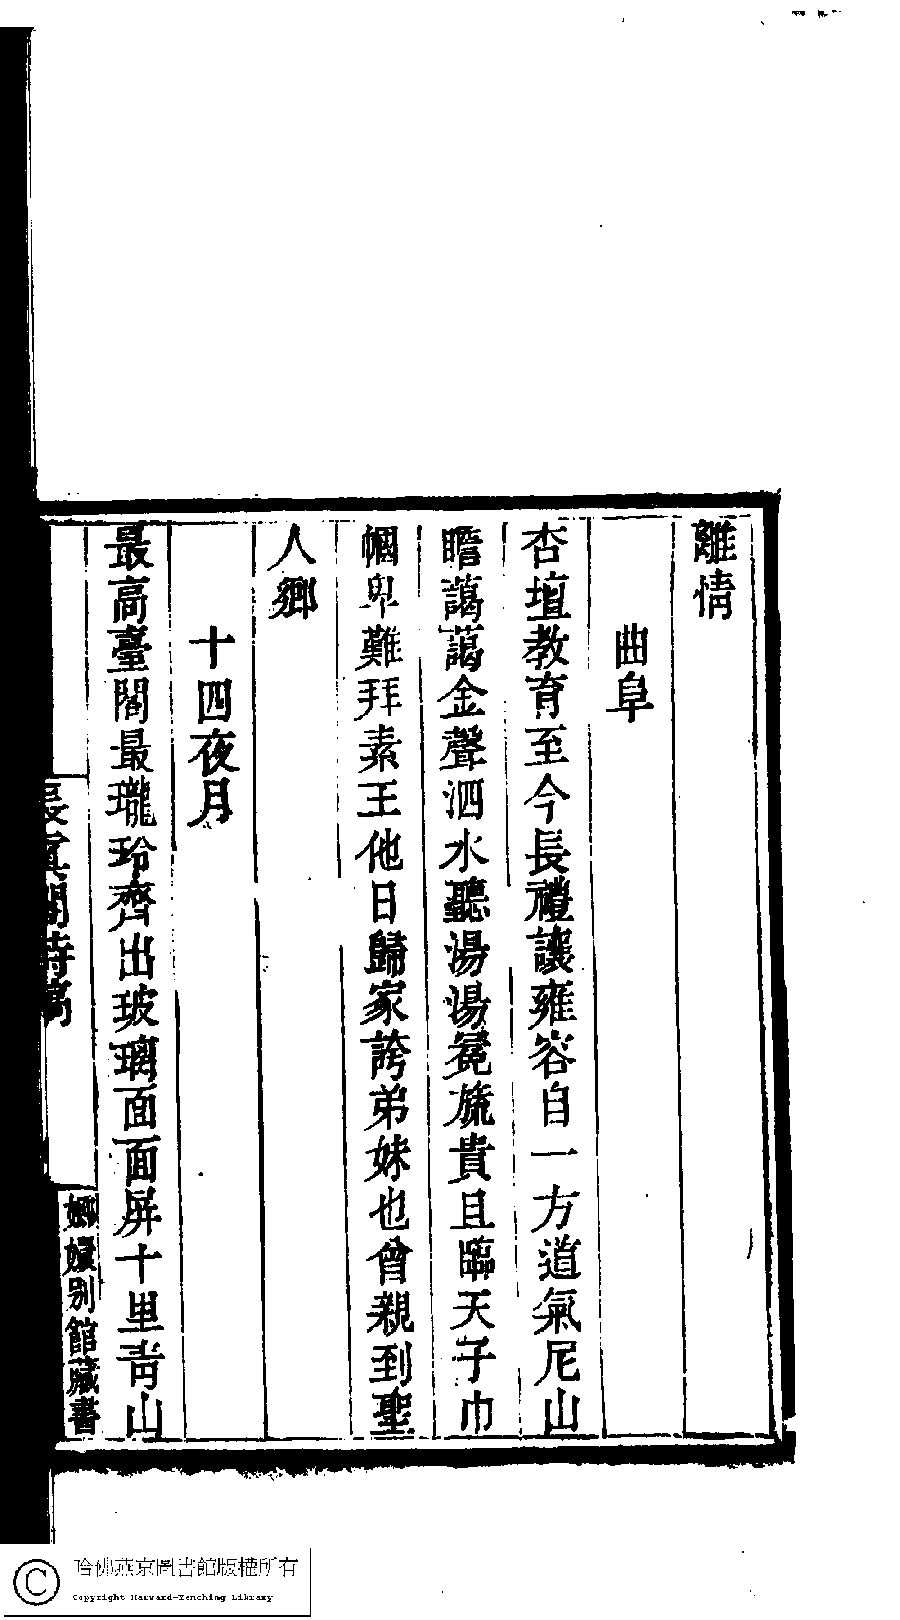 離情
曲阜
杏壇教育至今長禮讓雍容自一方道氣尼山
瞻藹藹金聲泗水聽湯湯冕旒貴且臨天子巾
幗卑難拜素王他日歸家誇弟妹也曾親到聖
人鄉
十四夜月
最高臺閣最瓏玲齊出玻璃面面屏十里青山
長真閣詩稿
嫏嬛別館藏書
哈佛燕京圖書館版權所有
Copyright Harvard-Yenching Library